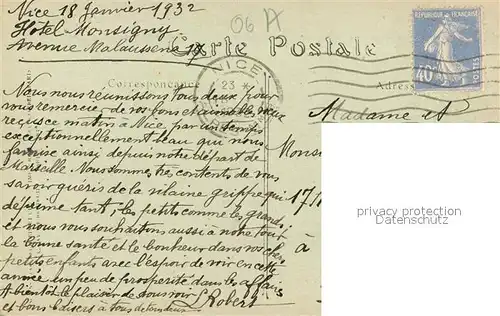 Nice 18 Janvier 1932
Hotel Monsigny
Avenue Malaussena 17
06 A
RÉPUBLIQUE FRANÇAISE
40
POSTES
Carte Postale
NICE
23
Correspondance
Adresse
Nous nous réunissons tous deux pour
vous remercier de vos bons et aimables vœux
reçus ce matin à Nice par un temps
exceptionnellement beau qui nous
favorise ainsi depuis notre départ de
Marseille Nous sommes très contents de vous
savoir guéris de la vilaine grippe qui
déprime tant les petits comme les grands
et nous vous souhaitons aussi à notre tour
la bonne santé et le bonheur dans vos chers
petits enfants avec l'espoir de voir en cette
année un peu de prospérité dans les affaires
A bientôt le plaisir de vous voir
et bons baisers à tous de tous deux
L Robert
Madame et
Monsi
17
à
privacy protection